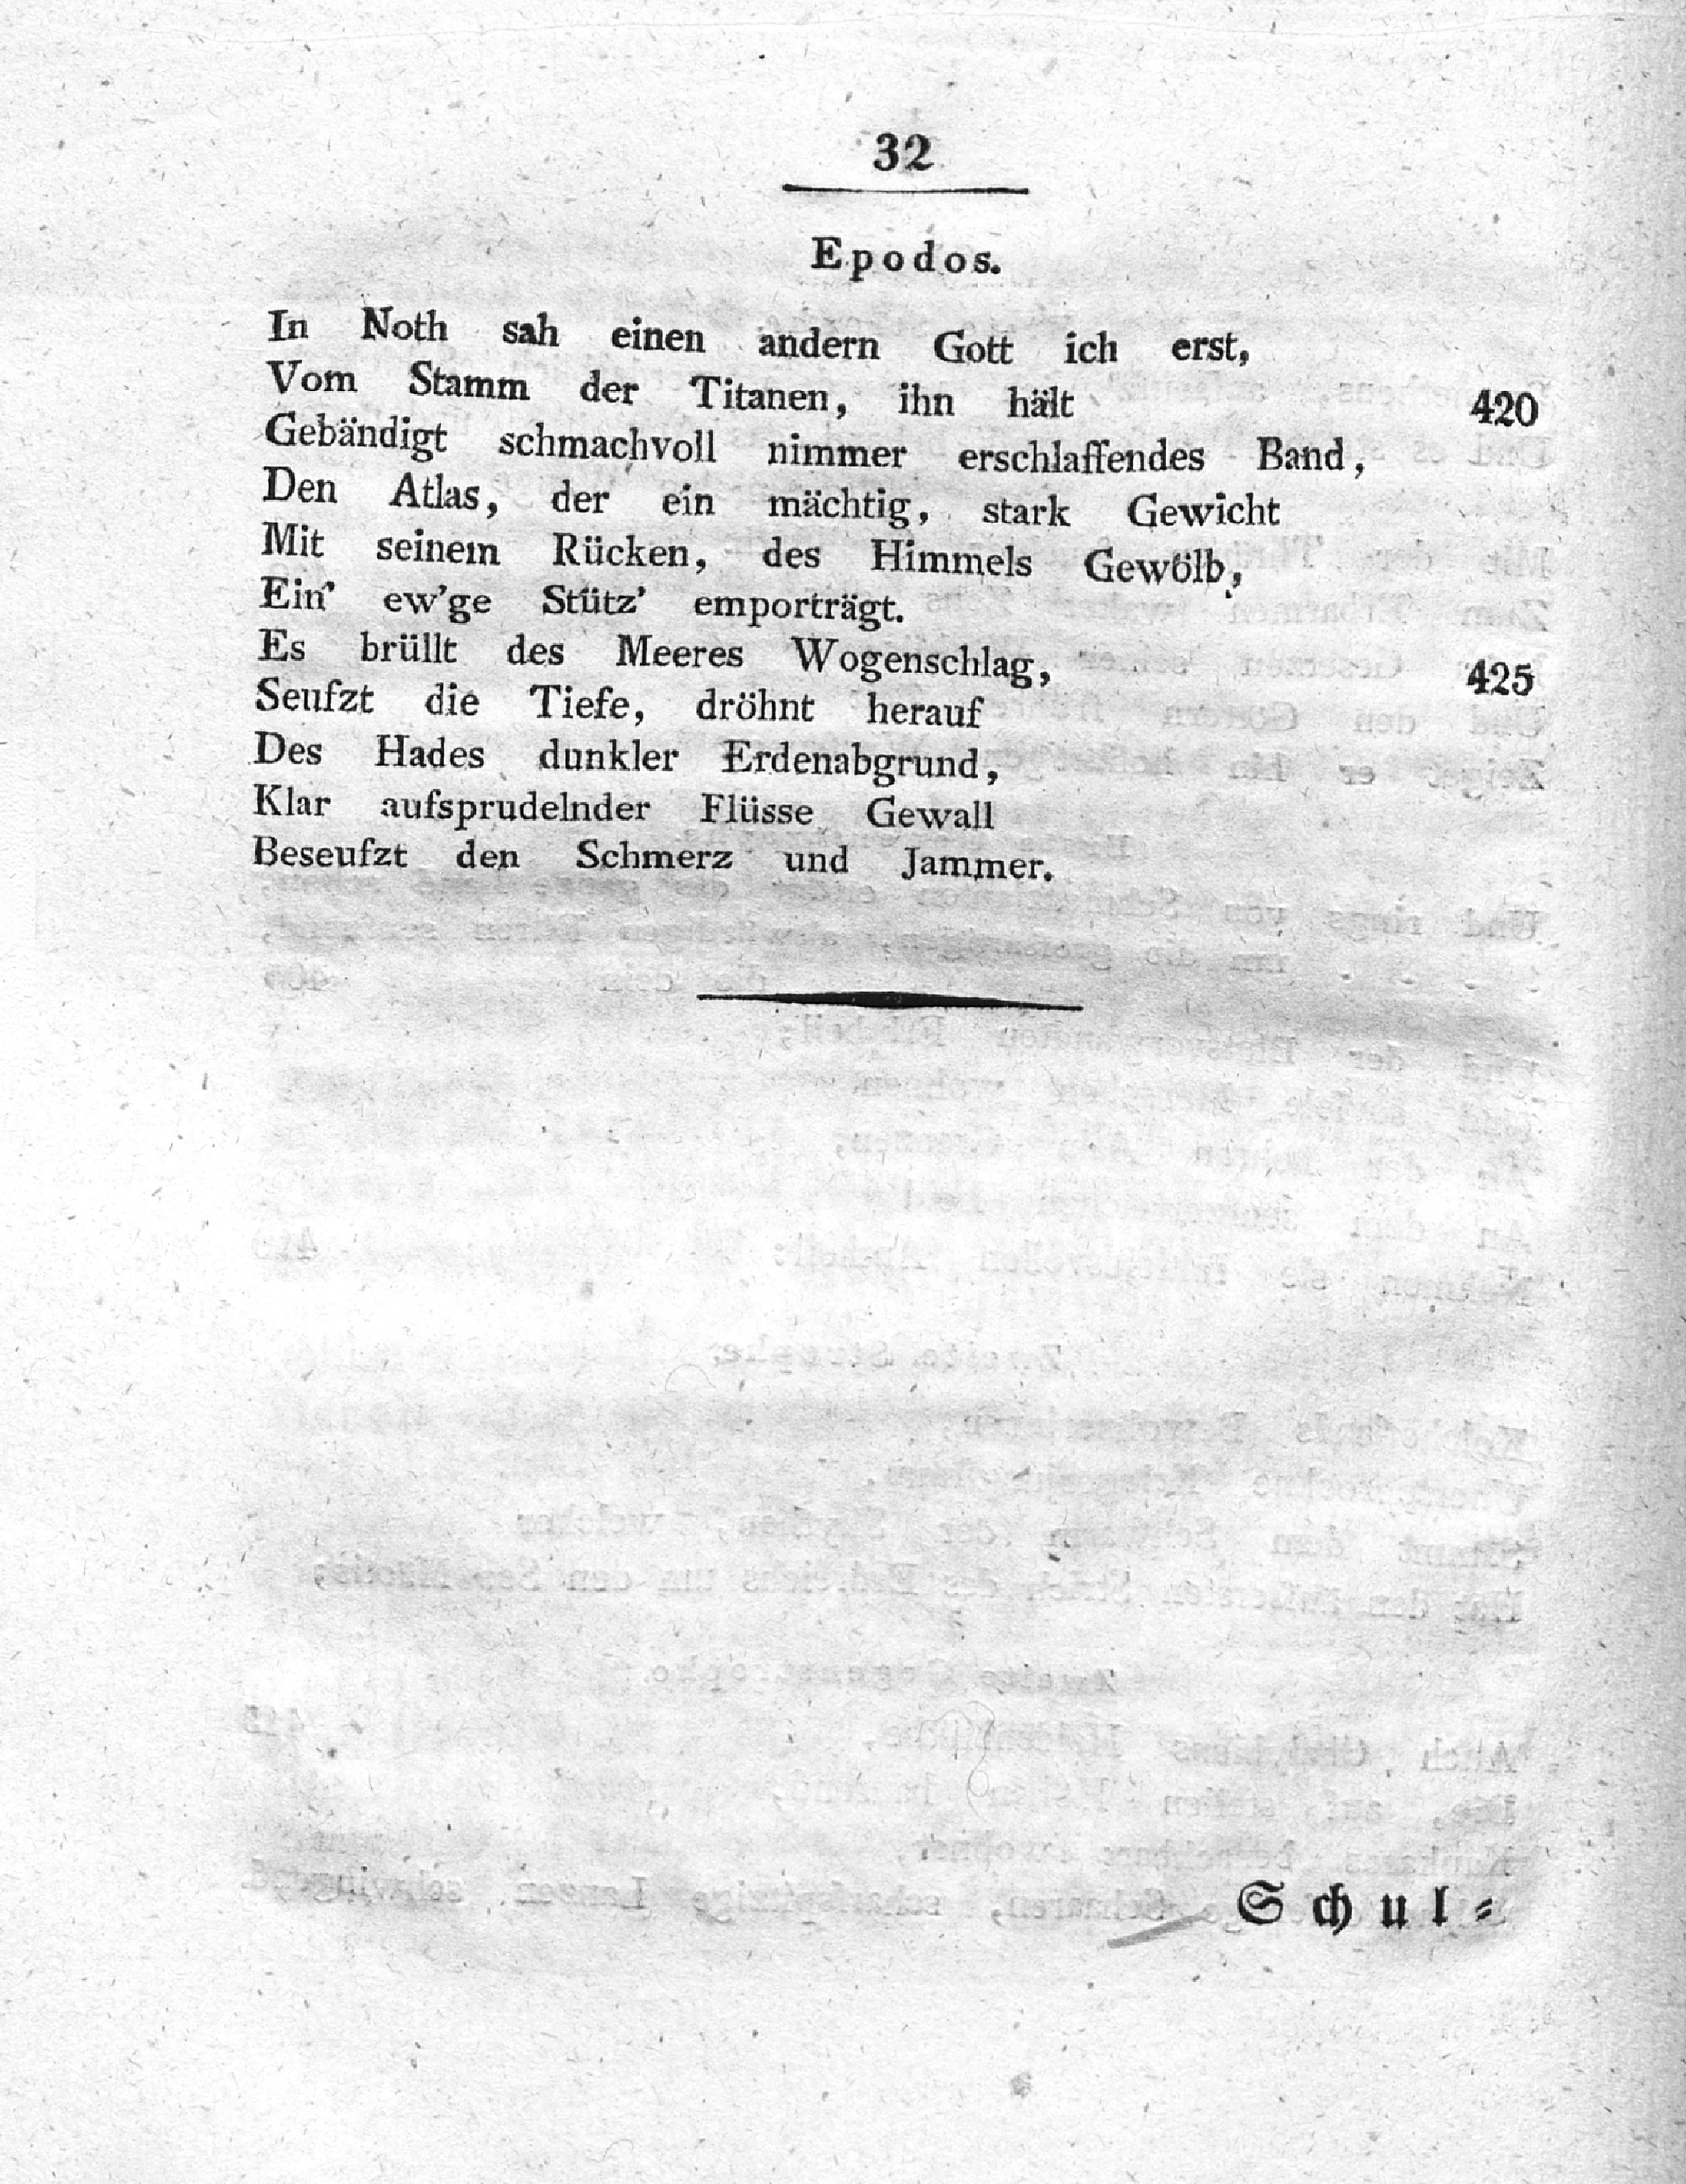 32
Epodos.
In Noth sah einen andern Gott ich erst,
Vom Stamm der Titanen, ihn hält 420
Gebändigt schmachvoll nimmer erschlaffendes Band,
Den Atlas, der ein mächtig, stark Gewicht
Mit seinem Rücken, des Himmels Gewölb,
Ein' ew'ge Stütz' emporträgt.
Es brüllt des Meeres Wogenschlag, 425
Seufzt die Tiefe, dröhnt herauf
Des Hades dunkler Erdenabgrund,
Klar aufsprudelnder Flüsse Gewall
Beseufzt den Schmerz und Jammer.
Schul-